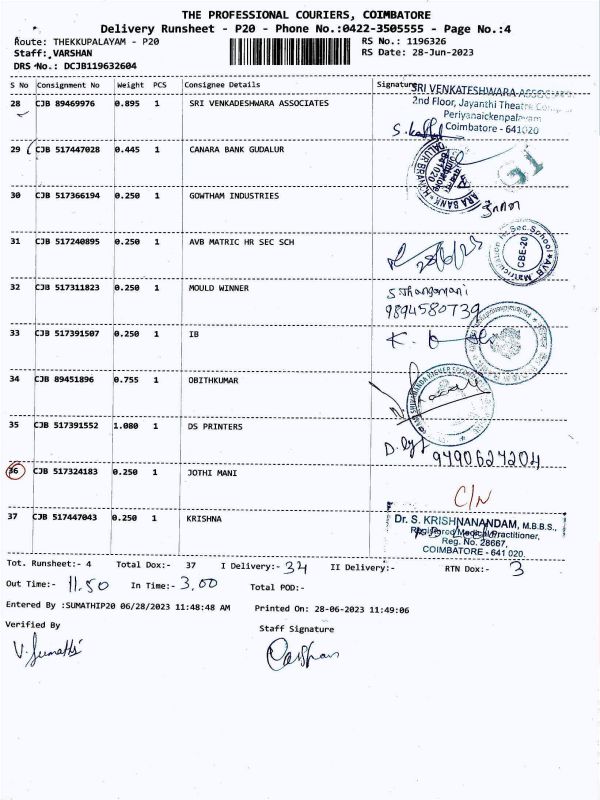 THE PROFESSIONAL COURIERS, COIMBATORE
Delivery Runsheet - P20 - Phone No.:0422-3505555 - Page No.:4
Route: THEKKUPALAYAM - P20
RS No.: 1196326
Staff: VARSHAN
RS Date: 28-Jun-2023
DRS No.: DCJB119632604
S No Consignment No Weight PCS Consignee Details Signature
28 CJB 89469976 0.895 1 SRI VENKADESHWARA ASSOCIATES
SRI VENKATESHWARA ASSOCIATES
2nd Floor, Jayanthi Theatre
Periyanaickenpalayam
Coimbatore - 641020
29 CJB 517447028 0.445 1 CANARA BANK GUDALUR
30 CJB 517366194 0.250 1 GOWTHAM INDUSTRIES
31 CJB 517240895 0.250 1 AVB MATRIC HR SEC SCH
28/6/23
CBE-20
32 CJB 517311823 0.250 1 MOULD WINNER
S Thangamani
9894580739
33 CJB 517391507 0.250 1 IB
34 CJB 89451896 0.755 1 OBITHKUMAR
35 CJB 517391552 1.080 1 DS PRINTERS
9790627204
36 CJB 517324183 0.250 1 JOTHI MANI
C/N
37 CJB 517447043 0.250 1 KRISHNA
Dr. S. KRISHNANANDAM, M.B.B.S.,
Registered Medical Practitioner,
Reg. No. 28667,
COIMBATORE - 641 020.
Tot. Runsheet:- 4 Total Dox:- 37 I Delivery:- 34 II Delivery:- RTN Dox:- 3
Out Time:- 11.50 In Time:- 3.00 Total POD:-
Entered By :SUMATHIP20 06/28/2023 11:48:48 AM Printed On: 28-06-2023 11:49:06
Verified By Staff Signature
V. Sumathi
Varshan